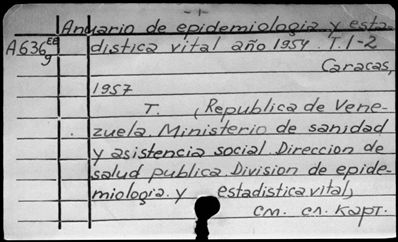 -1-
Anuario de epidemiologia y esta-
A636 ee g
distica vital año 1954. T. 1-2
Caracas,
1957
T. (Republica de Vene-
zuela. Ministerio de sanidad
y asistencia social. Direccion de
salud publica. Division de epide-
miologia. y estadistica vital)
см. сл. карт.